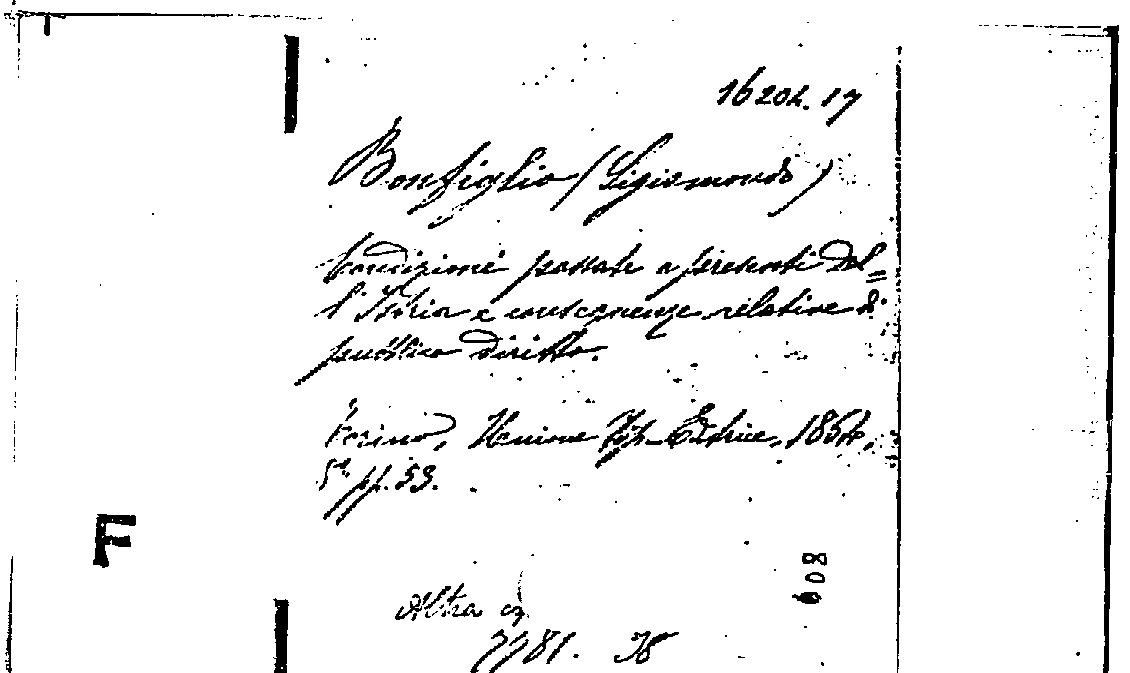 16204.17
Bonfiglio (Sigismondo)
Condizioni passate e presenti del=
l'Istria e conseguenze relative di
pubblico diritto.
Torino, Unione Tip-Editrice, 1864,
8° pp. 53.
F
608
Altra
7781. 38